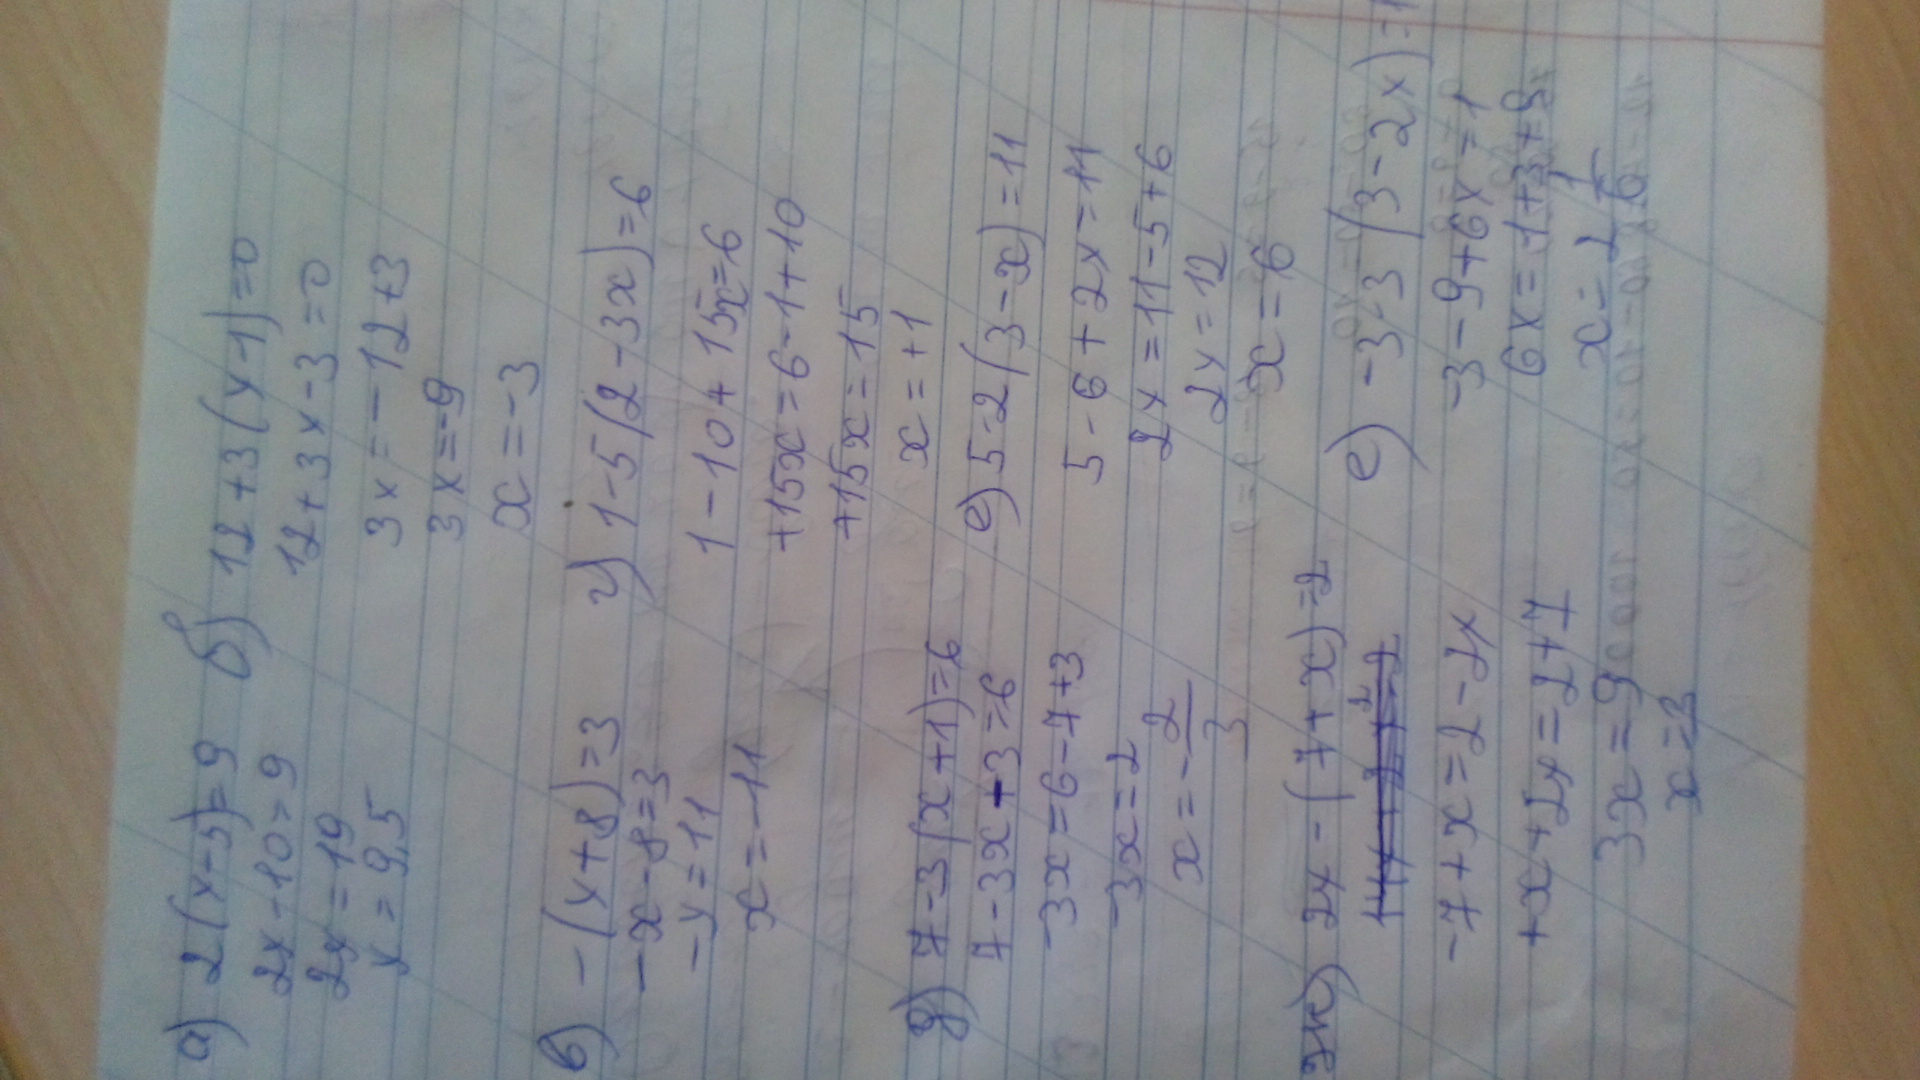 а) 2(x-5)=9
2x-10=9
2x=19
x=9,5
б) 12+3(x-1)=0
12+3x-3=0
3x=-12+3
3x=-9
x=-3
в) -(x+8)=3
-x-8=3
-x=11
x=-11
г) 1-5(2-3x)=6
1-10+15x=6
+15x=6-1+10
+15x=15
x=+1
д) 7-3(x+1)=6
7-3x-3=6
-3x=6-7+3
-3x=2
x=-2/3
е) 5-2(3-x)=11
5-6+2x=11
2x=11-5+6
2x=12
x=6
ж) 2x-(7+x)=2
-7+x=2-2x
+x+2x=2+7
3x=9
x=3
е) -3-3(3-2x)=1
-3-9+6x=1
6x=1+3+9
x=2 1/6